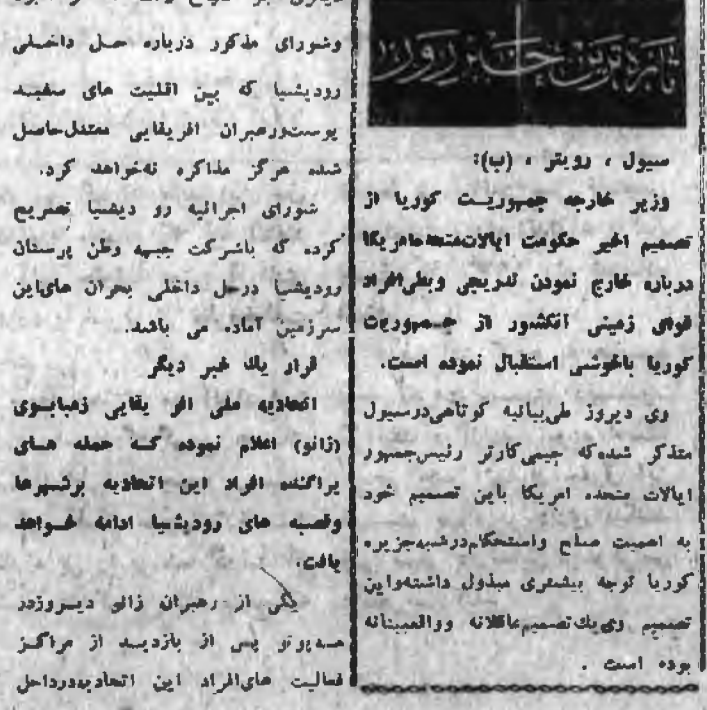 تازه ترین خبر روز
سیول ، رویتر ، (ب):
وزیر خارجه جمهوریت کوریا از
تصمیم اخیر حکومت ایالات‌متحده‌امریکا
درباره خارج نمودن تدریجی وبطی‌افراد
قوای زمینی آنکشور از جمهوریت
کوریا باخوشی استقبال نموده است.
وی دیروز طی‌بیانیه کوتاهی‌درسیول
متذکر شده‌که جیمی‌کارتر رئیس‌جمهور
ایالات متحده امریکا باین تصمیم خود
به اهمیت صلح واستحکام‌درشبه‌جزیره
کوریا توجه بیشتری مبذول داشته‌واین
تصمیم وی‌یك‌تصمیم‌عاقلانه وواقعبینانه
بوده است .
وشورای مذکور درباره حل داخلی
رودیشیا که بین اقلیت های سفید
پوست‌ورهبران افریقایی معتدل‌حاصل
شده هرگز مذاکره نه‌خواهد کرد.
شورای اجرائیه رو دیشیا تصریح
کرده که باشرکت جبهه وطن پرستان
رودیشیا درحل داخلی بحران های‌این
سرزمین آماده می باشد.
قرار یك خبر دیگر
اتحادیه ملی افر یقایی زمبابوی
(زانو) اعلام نموده که حمله های
پراگنده افراد این اتحادیه برشهرها
وقصبه های رودیشیا ادامه خواهد
یافت.
یکی از رهبران زانو دیروزدر
پس از بازدید از مراکز
فعالیت های‌افراد این اتحادیه‌درداخل